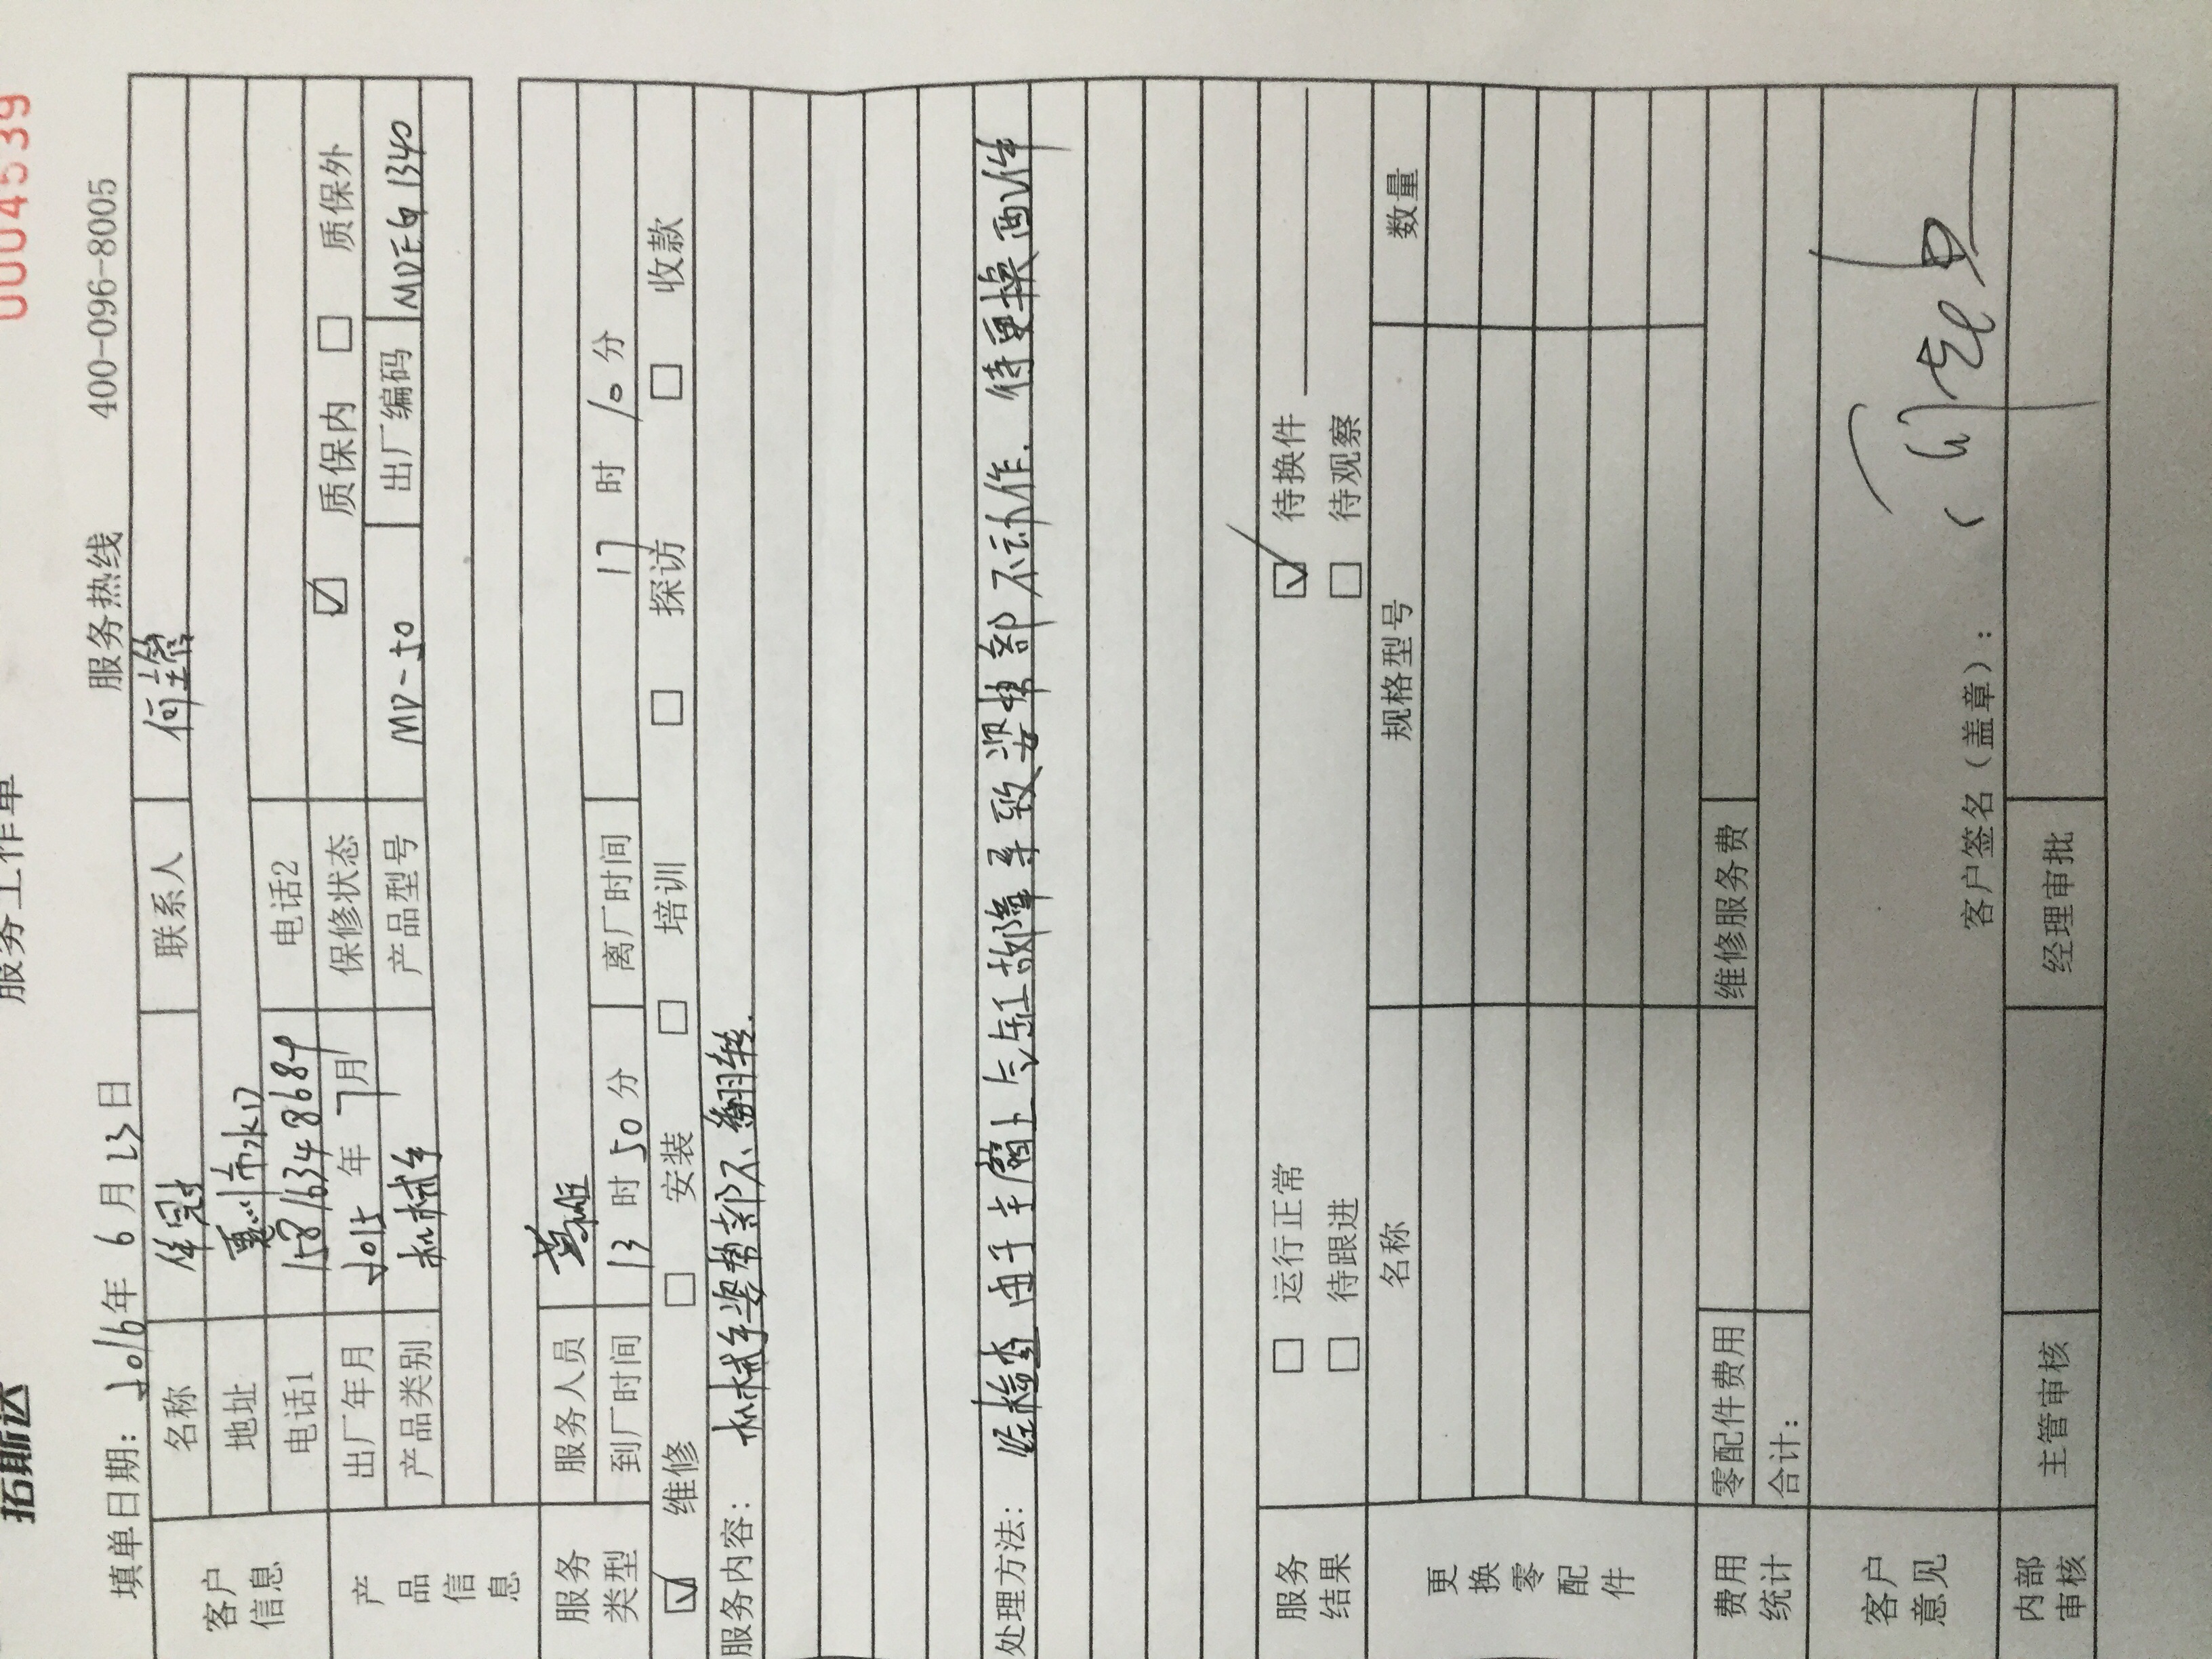 拓斯达 服务工作单 0004539
填单日期: 2016年 6 月 23 日 服务热线 400-096-8005
客户信息 名称 伟冠 联系人 何主管
地址 惠州市水口
电话1 电话2
产品信息 出厂年月 2015 年 7 月 保修状态 ☑ 质保内 □ 质保外
产品类别 机械手 产品型号 MD-50 出厂编码 MDEG1340
服务类型 服务人员
到厂时间 13 时 50 分 离厂时间 17 时 10 分
☑ 维修 □ 安装 □ 培训 □ 探访 □ 收款
服务内容: 机械手姿势部不翻转.
处理方法: 经检查 由于主臂上气缸故障导致姿势部不动作. 待更换配件
服务结果 □ 运行正常 ☑ 待换件
□ 待跟进 □ 待观察
更换零配件 名称 规格型号 数量
费用统计 零配件费用 维修服务费
合计:
客户意见
客户签名(盖章):
内部审核 主管审核 经理审批